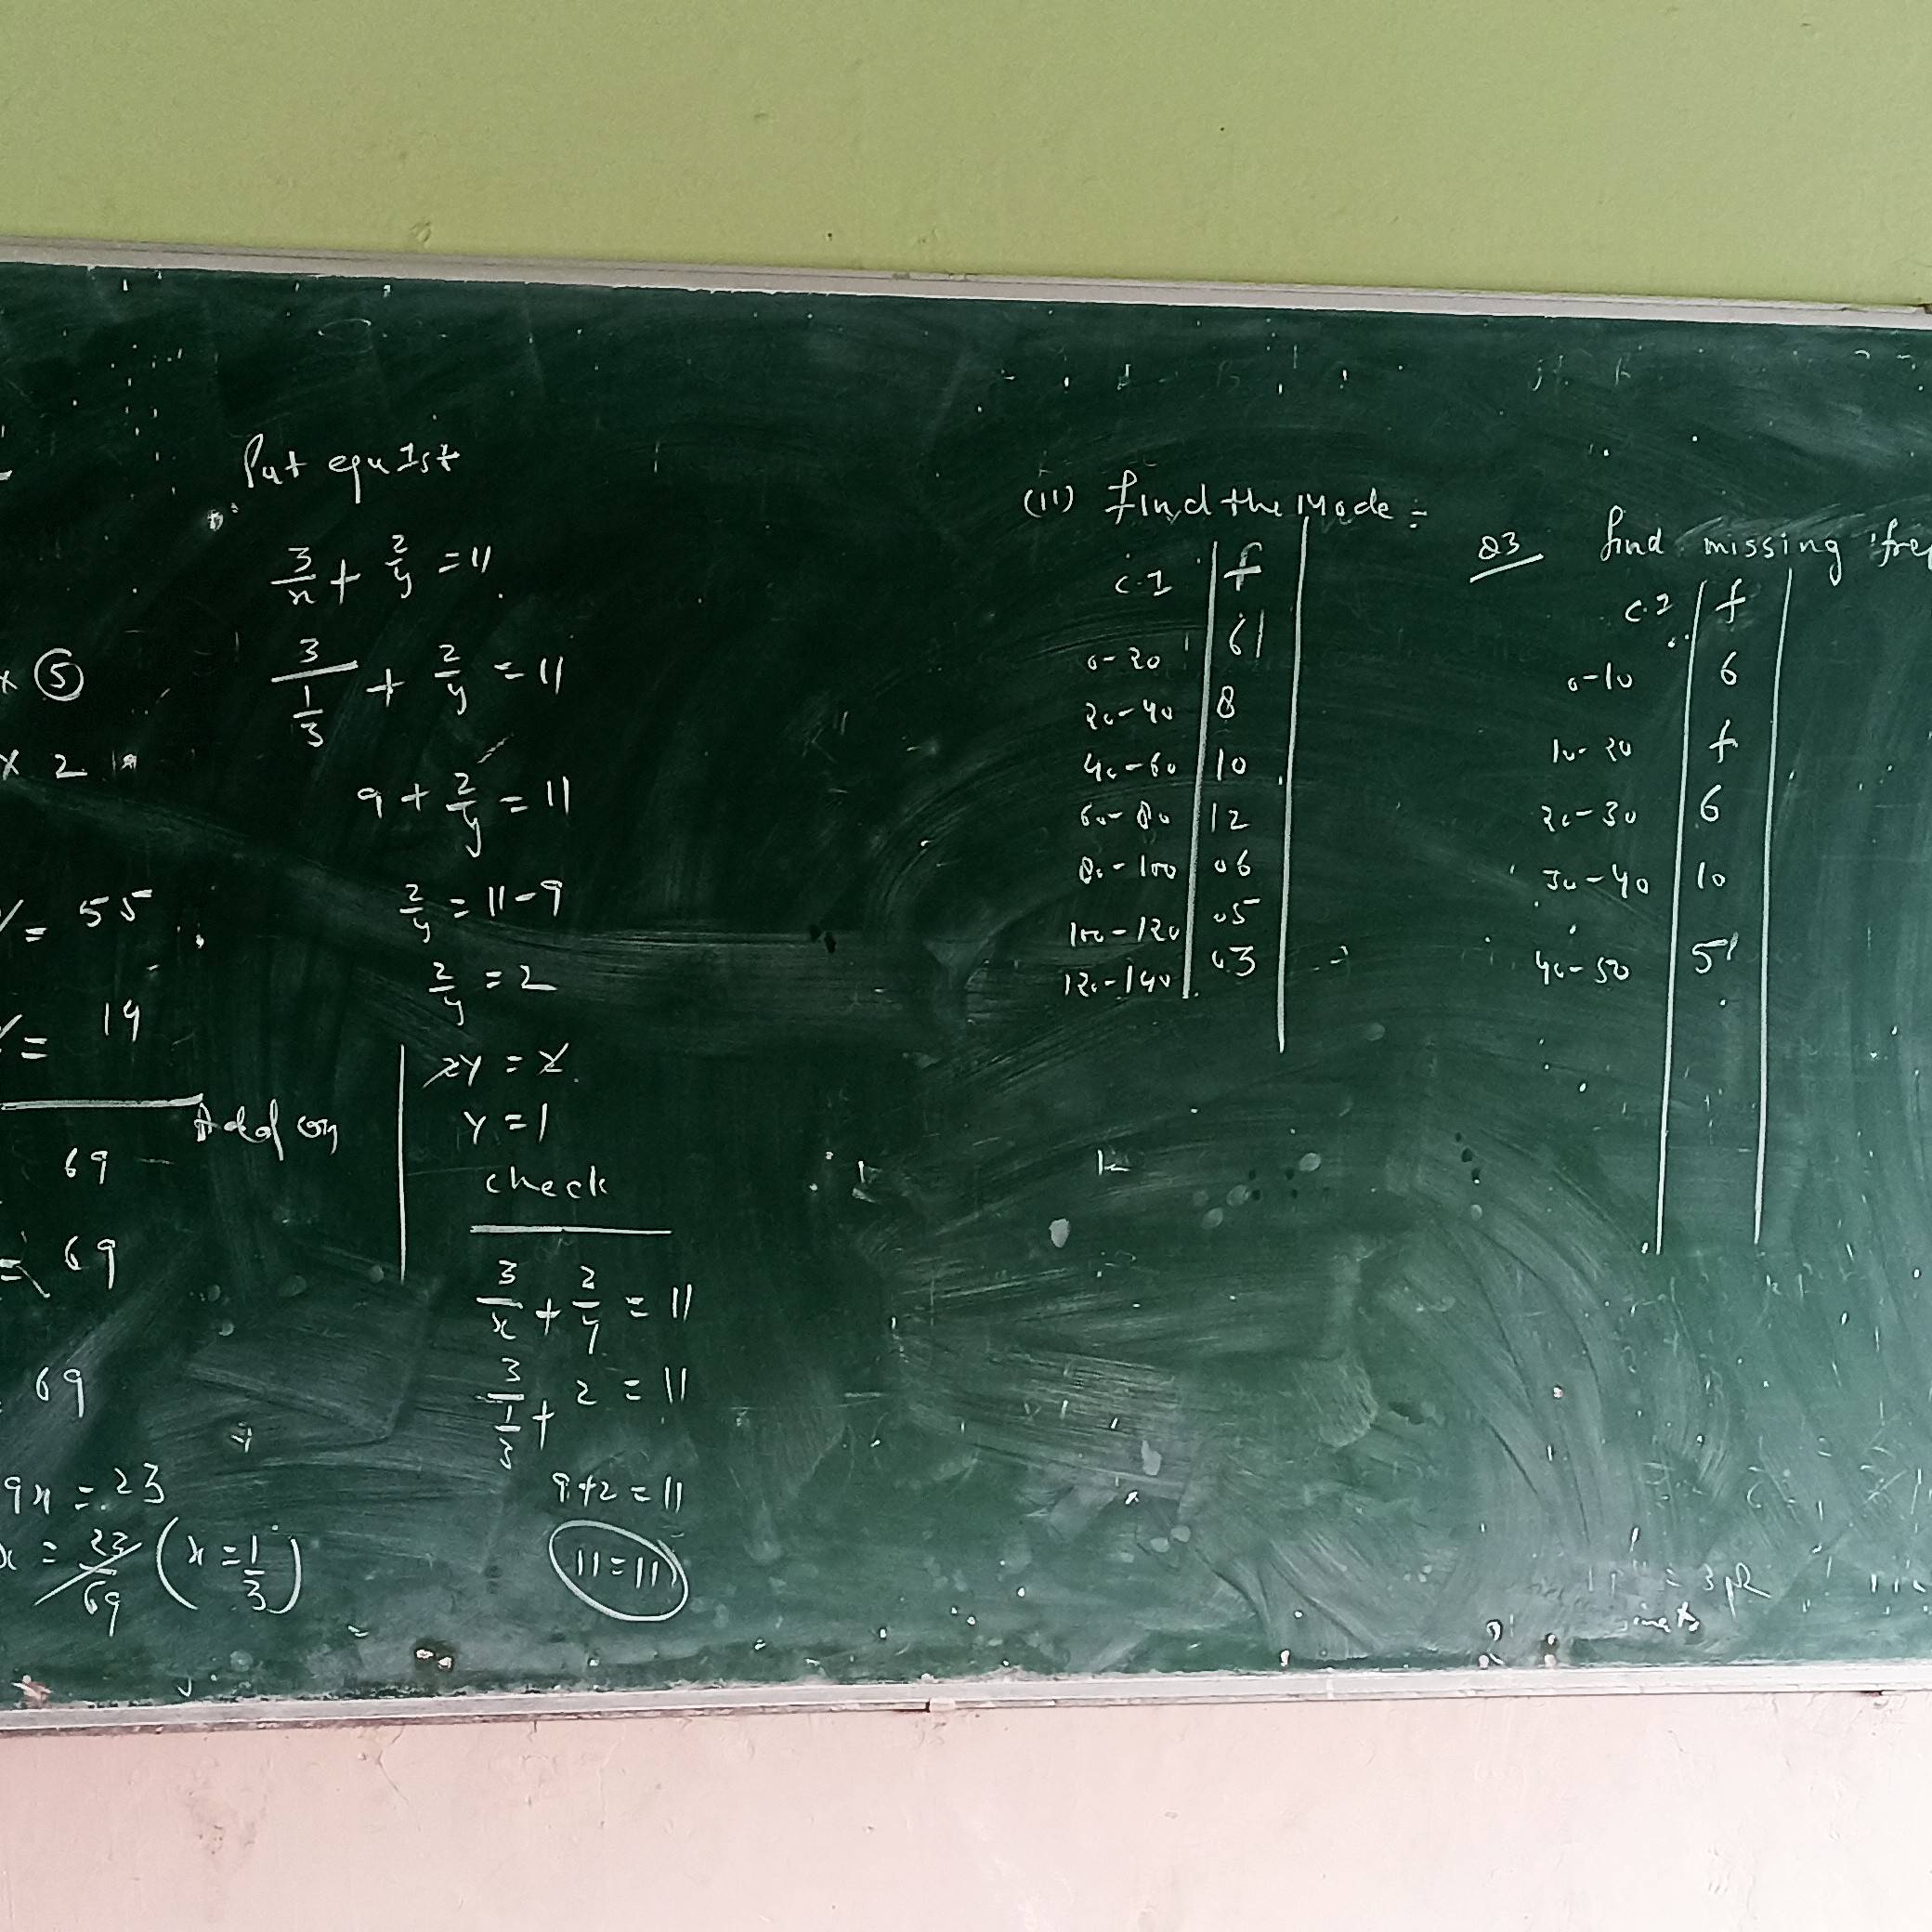 × ⑤
× 2
y = 55
y = 14
Add on
69
= 69
69
9x = 23
x = 23/69 (x = 1/3)
Put equ Ist
3/x + 2/y = 11
3/(1/3) + 2/y = 11
9 + 2/y = 11
2/y = 11-9
2/y = 2
2y = 2
y = 1
check
3/x + 2/y = 11
3/(1/3) + 2 = 11
9+2 = 11
11=11
(II) find the Mode =
C.I f
0-20 6
20-40 8
40-60 10
60-80 12
80-100 06
100-120 05
120-140 03
Q3 find missing fre
C.I f
0-10 6
10-20 f
20-30 6
30-40 10
40-50 5